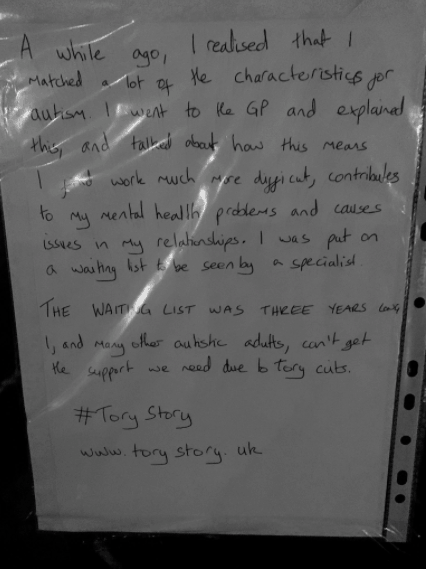 A while ago, I realised that I
matched a lot of the characteristics for
autism. I went to the GP and explained
this, and talked about how this means
I find work much more difficult, contributes
to my mental health problems and causes
issues in my relationships. I was put on
a waiting list to be seen by a specialist.
THE WAITING LIST WAS THREE YEARS long
I, and many other autistic adults, can't get
the support we need due to Tory cuts.
#Tory Story
www.torystory.uk